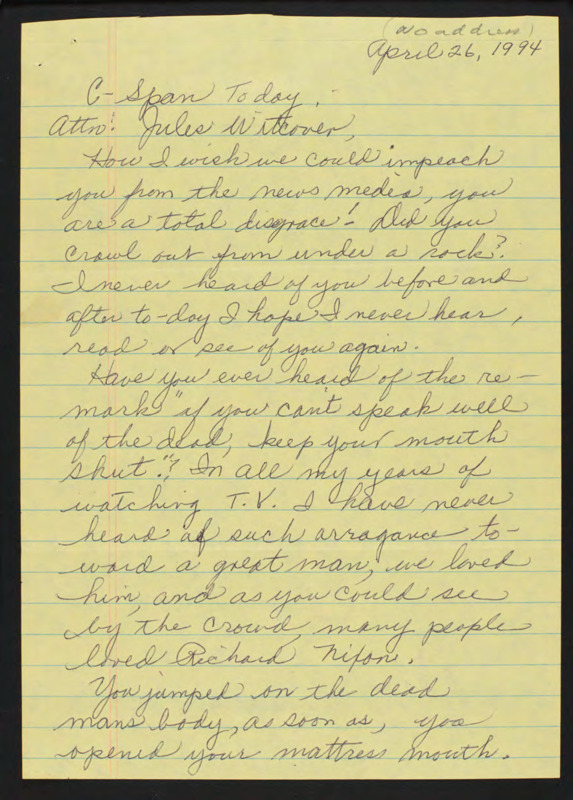 (no address)
April 26, 1994
C-Span Today.
Attn: Jules Witcover,
How I wish we could impeach
you from the news media, you
are a total disgrace! Did you
crawl out from under a rock?
I never heard of you before and
after to-day I hope I never hear,
read or see of you again.
Have you ever heard of the re-
mark "if you can't speak well
of the dead, keep your mouth
shut"? In all my years of
watching T.V. I have never
heard of such arragance to-
ward a great man, we loved
him, and as you could see
by the crowd, many people
loved Richard Nixon.
You jumped on the dead
mans body, as soon as, you
opened your mattress mouth.